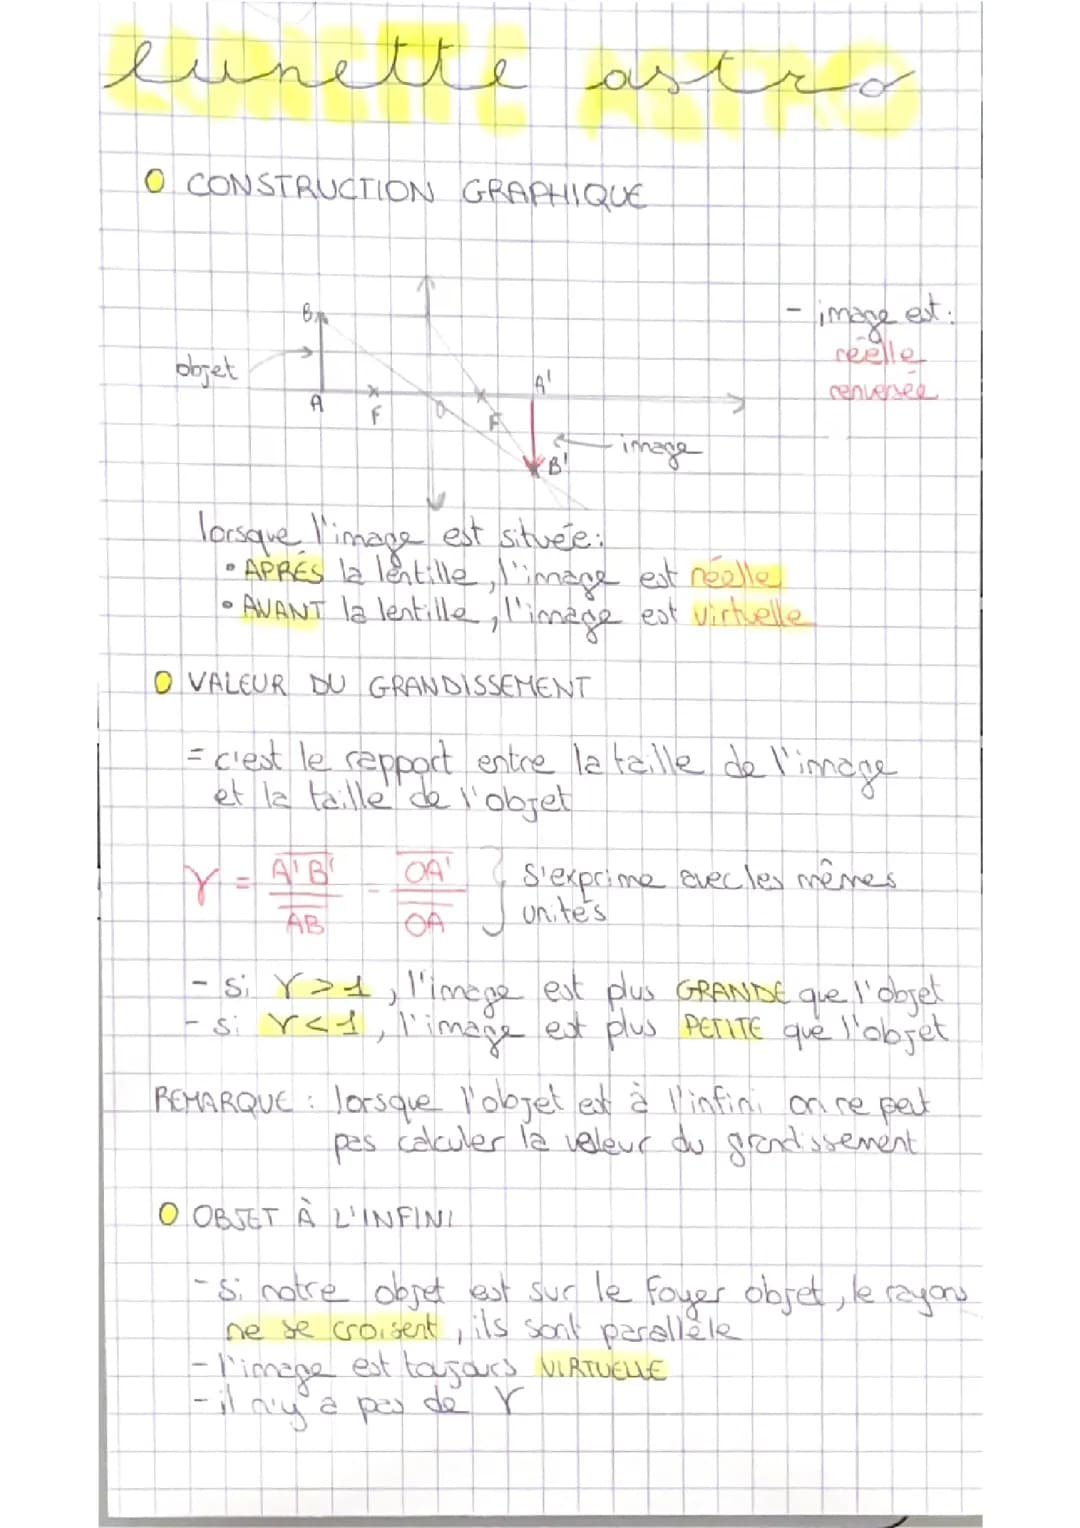 lunette astro
LUNETTE ASTRO
CONSTRUCTION GRAPHIQUE
B
objet
A
F
O
F
A'
B'
image
- image est :
réelle
renversée
lorsque l'image est située :
• APRÉS la lentille, l'image est réelle
• AVANT la lentille, l'image est virtuelle
VALEUR DU GRANDISSEMENT
= c'est le rapport entre la taille de l'image
et la taille de l'objet
γ = A'B' / AB = OA' / OA } s'exprime avec les mêmes
unités
- si γ > 1, l'image est plus GRANDE que l'objet
- si γ < 1, l'image est plus PETITE que l'objet
REMARQUE : lorsque l'objet est à l'infini on ne peut
pas calculer la valeur du grandissement
OBJET À L'INFINI
- si notre objet est sur le foyer objet, le rayons
ne se croisent, ils sont parallèle
- l'image est toujours VIRTUELLE
- il n'y a pas de γ